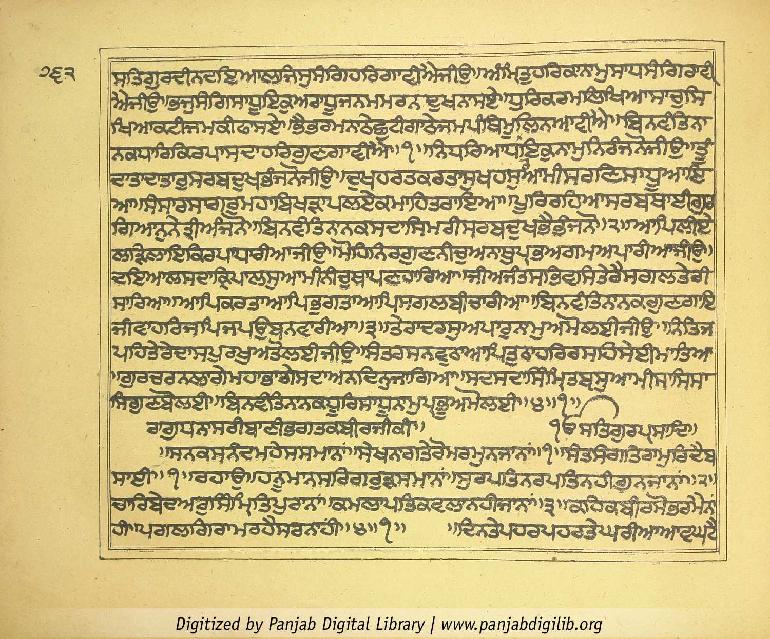 ੨੬੨
ਸਤਿਗੁਰਦੀਨਦਇਆਲਜਿਸੁਸੰਗਿਹਰਿਗਾਵੀਐਜੀਉ॥ਅੰਮ੍ਰਿਤੁਹਰਿਕਾਨਾਮੁਸਾਧਸੰਗਿਰਾਵੀ
ਐਜੀਉ॥ਭਜੁਸੰਗਿਸਾਧੂਇਕੁਅਰਾਧੂਜਨਮਮਰਨਦੁਖਨਾਸਏ॥ਧੁਰਿਕਰਮੁਲਿਖਿਆਸਾਚੁਸਿ
ਖਿਆਕਟੀਜਮਕੀਫਾਸਏ॥ਭੈਭਰਮਨਾਠੇਛੁਟੀਗਾਠੇਜਮਪੰਥਿਮੂਲਿਨਆਵੀਐ॥ਬਿਨਵੰਤਿਨਾ
ਨਕਧਾਰਿਕਿਰਪਾਸਦਾਹਰਿਗੁਣਗਾਵੀਐ॥੧॥ਨਿਧਰਿਆਧਰਏਕੁਨਾਮੁਨਿਰੰਜਨੋਜੀਉ॥ਤੂ
ਦਾਤਾਦਾਤਾਰੁਸਰਬਦੁਖਭੰਜਨੋਜੀਉ॥ਦੁਖਹਰਤਕਰਤਾਸੁਖਹਸੁਆਮੀਸਰਣਿਸਾਧੂਆਇ
ਆ॥ਸੰਸਾਰਸਾਗਰੁਮਹਾਬਿਖੜਾਪਲਏਕਮਾਹਿਤਰਾਇਆ॥ਪੂਰਿਰਹਿਆਸਰਬਥਾਈਗੁਰ
ਗਿਆਨੁਨੇਤ੍ਰੀਅੰਜਨੋ॥ਬਿਨਵੰਤਿਨਾਨਕਸਦਾਸਿਮਰੀਸਰਬਦੁਖਭੈਭੰਜਨੋ॥੨॥ਆਪਿਲੀਏ
ਲੜਿਲਾਇਕਿਰਪਾਧਾਰੀਆਜੀਉ॥ਮੋਹਿਨਿਰਗੁਣਨੀਚੁਅਨਾਥੁਪ੍ਰਭਅਗਮਅਪਾਰੀਆਜੀਉ॥
ਦਇਆਲਸਦਾਕ੍ਰਿਪਾਲਸੁਆਮੀਨੀਚਥਾਪਣਹਾਰਿਆ॥ਜੀਅਜੰਤਸਭਿਵਸਿਤੇਰੈਸਗਲਤੇਰੀ
ਸਾਰਿਆ॥ਆਪਿਕਰਤਾਆਪਿਭੁਗਤਾਆਪਿਸਗਲਬੀਚਾਰੀਆ॥ਬਿਨਵੰਤਿਨਾਨਕਗੁਣਗਾਇ
ਜੀਵਾਹਰਿਜਪਿਜਪਉਬਨਵਾਰੀਆ॥੩॥ਤੇਰਾਦਰਸੁਅਪਾਰੁਨਾਮੁਅਮੋਲਈਜੀਉ॥ਨਿਤਿਜ
ਪਹਿਤੇਰੇਦਾਸਪੁਰਖਅਤੋਲਈਜੀਉ॥ਸੰਤਰਸਨਵੂਠਾਆਪਿਤੂਠਾਹਰਿਰਸਹਿਸੇਈਮਾਤਿਆ
॥ਗੁਰਚਰਨਲਾਗੇਮਹਾਭਾਗੇਸਦਾਅਨਦਿਨੁਜਾਗਿਆ॥ਸਦਸਦਾਸਿੰਮ੍ਰਿਤਬ੍ਯਸੁਆਮੀਸਾਸਿਸਾ
ਸਿਗੁਣਬੋਲਈ॥ਬਿਨਵੰਤਿਨਾਨਕਧੂਰਿਸਾਧੂਨਾਮੁਪ੍ਰਭੂਅਮੋਲਈ॥੪॥੧॥
ਰਾਗੁਧਨਾਸਰੀਬਾਣੀਭਗਤਕਬੀਰਜੀਕੀ॥ ੴਸਤਿਗੁਰਪ੍ਰਸਾਦਿ॥
॥ਸਨਕਸਨੰਦਮਹੇਸਸਮਾਨਾਂ॥ਸੇਖਨਾਗਿਤੇਰੋਮਰਮੁਨਜਾਨਾਂ॥੧॥ਸੰਤਸੰਗਤਿਰਾਮੁਰਿਦੈਬ
ਸਾਈ॥੧॥ਰਹਾਉ॥ਹਨੂਮਾਨਸਰਿਗਰੁੜਸਮਾਨਾਂ॥ਸੁਰਪਤਿਨਰਪਤਿਨਹੀਗੁਨਜਾਨਾਂ॥੨॥
ਚਾਰਿਬੇਦਅਰੁਸਿੰਮ੍ਰਿਤਿਪੁਰਾਨਾਂ॥ਕਮਲਾਪਤਿਕਵਲਾਨਹੀਜਾਨਾਂ॥੩॥ਕਹਿਕਬੀਰਸੋਭਰਮੈਨਾ
ਹੀ॥ਪਗਲਗਿਰਾਮਰਹੈਸਰਨਾਂਹੀ॥੪॥੧॥ ॥ਦਿਨਤੇਪਹਰਪਹਰਤੇਘਰੀਆਂਆਵਘਟੈ
Digitized by Panjab Digital Library | www.panjabdigilib.org